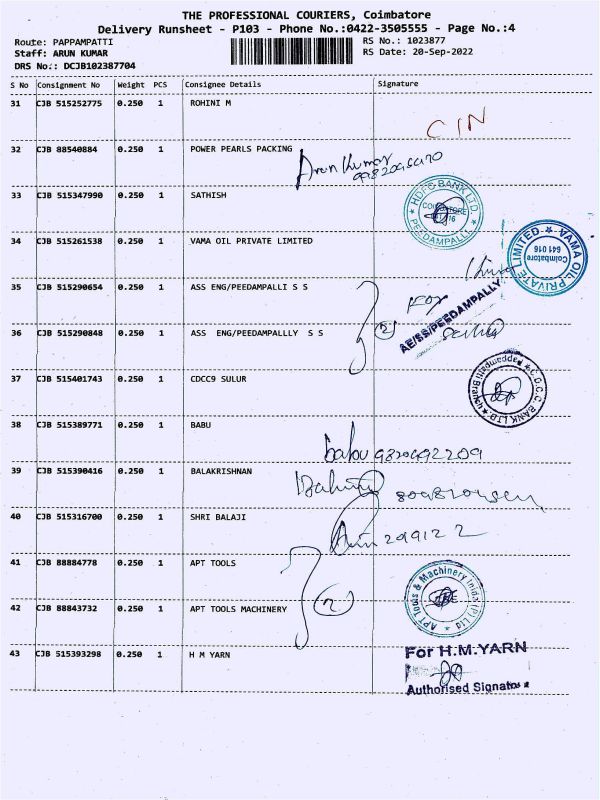 THE PROFESSIONAL COURIERS, Coimbatore
Delivery Runsheet - P103 - Phone No.:0422-3505555 - Page No.:4
Route: PAPPAMPATTI
Staff: ARUN KUMAR
DRS No.: DCJB102387704
RS No.: 1023877
RS Date: 20-Sep-2022
S No Consignment No Weight PCS Consignee Details Signature
31 CJB 515252775 0.250 1 ROHINI M
CIN
32 CJB 88540884 0.250 1 POWER PEARLS PACKING
Arun Kumar
33 CJB 515347990 0.250 1 SATHISH
HDFC BANK LTD
COIMBATORE
PEEDAMPALLI
34 CJB 515261538 0.250 1 VAMA OIL PRIVATE LIMITED
VAMA OIL PRIVATE LIMITED
Coimbatore
641 016
35 CJB 515290654 0.250 1 ASS ENG/PEEDAMPALLI S S
For
AE/SS/PEEDAMPALLY
36 CJB 515290848 0.250 1 ASS ENG/PEEDAMPALLLY S S
2
37 CJB 515401743 0.250 1 CDCC9 SULUR
C.D.C.C. BANK LTD.
Pappampatti Branch
38 CJB 515389771 0.250 1 BABU
babu 9820692209
39 CJB 515390416 0.250 1 BALAKRISHNAN
40 CJB 515316700 0.250 1 SHRI BALAJI
299122
41 CJB 88884778 0.250 1 APT TOOLS
APT Tools & Machinery India (P) Ltd
42 CJB 88843732 0.250 1 APT TOOLS MACHINERY
2
43 CJB 515393298 0.250 1 H M YARN
For H.M.YARN
Authorised Signator